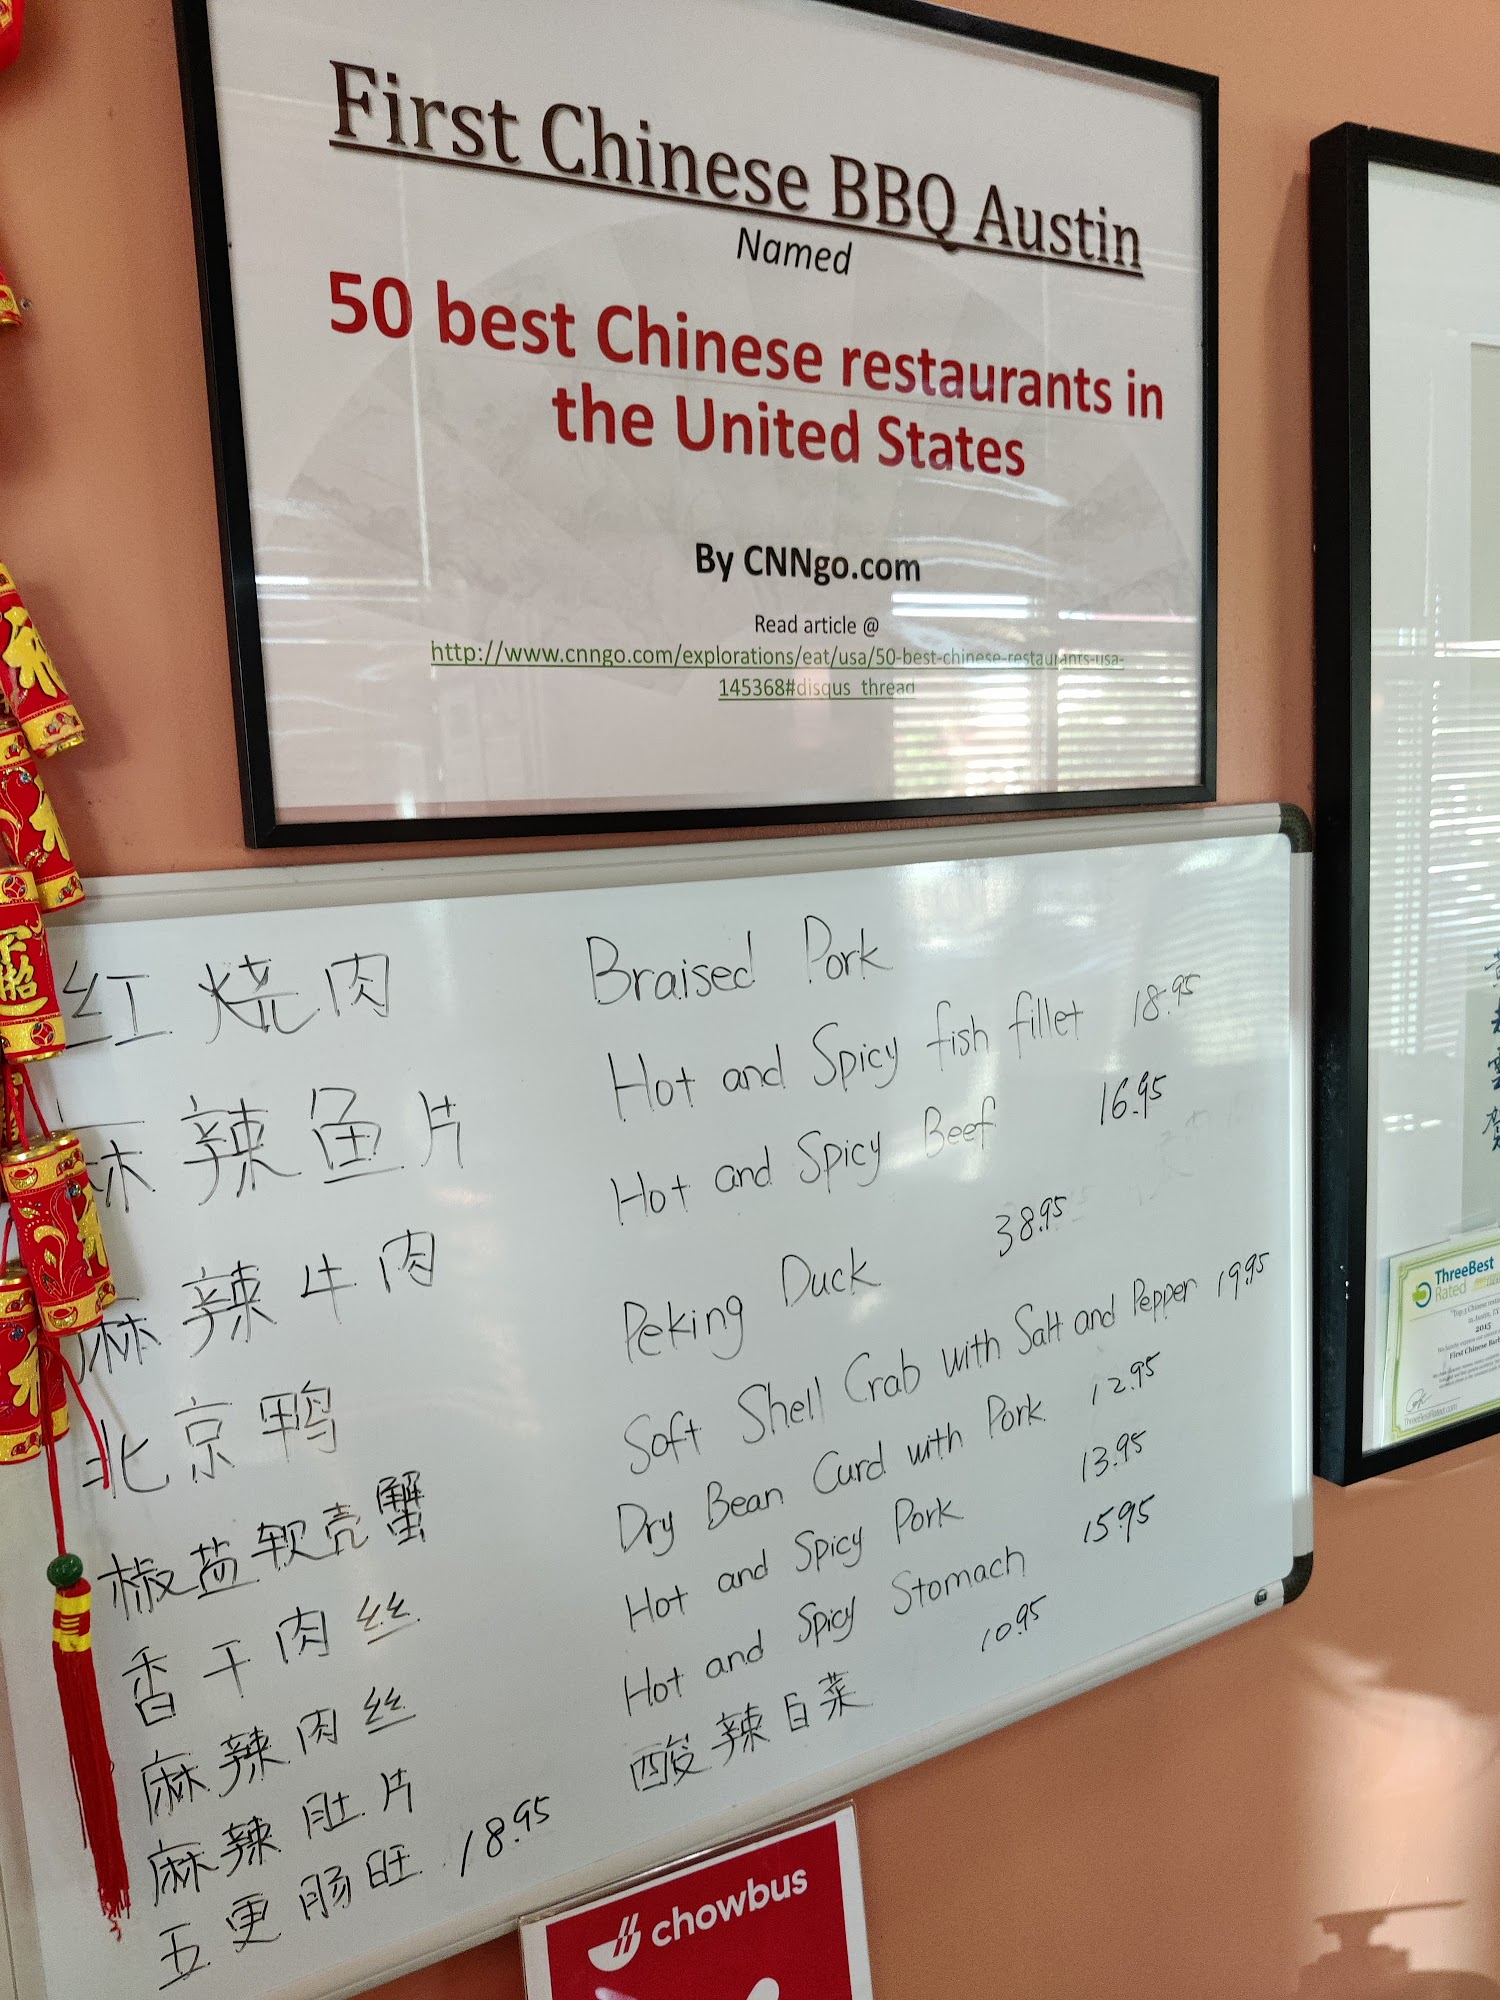 First Chinese BBQ Austin
Named
50 best Chinese restaurants in
the United States
By CNNgo.com
Read article @
http://www.cnngo.com/explorations/eat/usa/50-best-chinese-restaurants-usa-
145368#disqus_thread
红烧肉 Braised Pork
麻辣鱼片 Hot and Spicy fish fillet 18.95
麻辣牛肉 Hot and Spicy Beef 16.95
北京鸭 Peking Duck 38.95
椒盐软壳蟹 Soft Shell Crab with Salt and Pepper 19.95
香干肉丝 Dry Bean Curd with Pork 12.95
麻辣肉丝 Hot and Spicy Pork 13.95
麻辣肚片 Hot and Spicy Stomach 15.95
五更肠旺 18.95 酸辣白菜 10.95
chowbus
ThreeBest
Rated
2015
First Chinese
ThreeBestRated.com